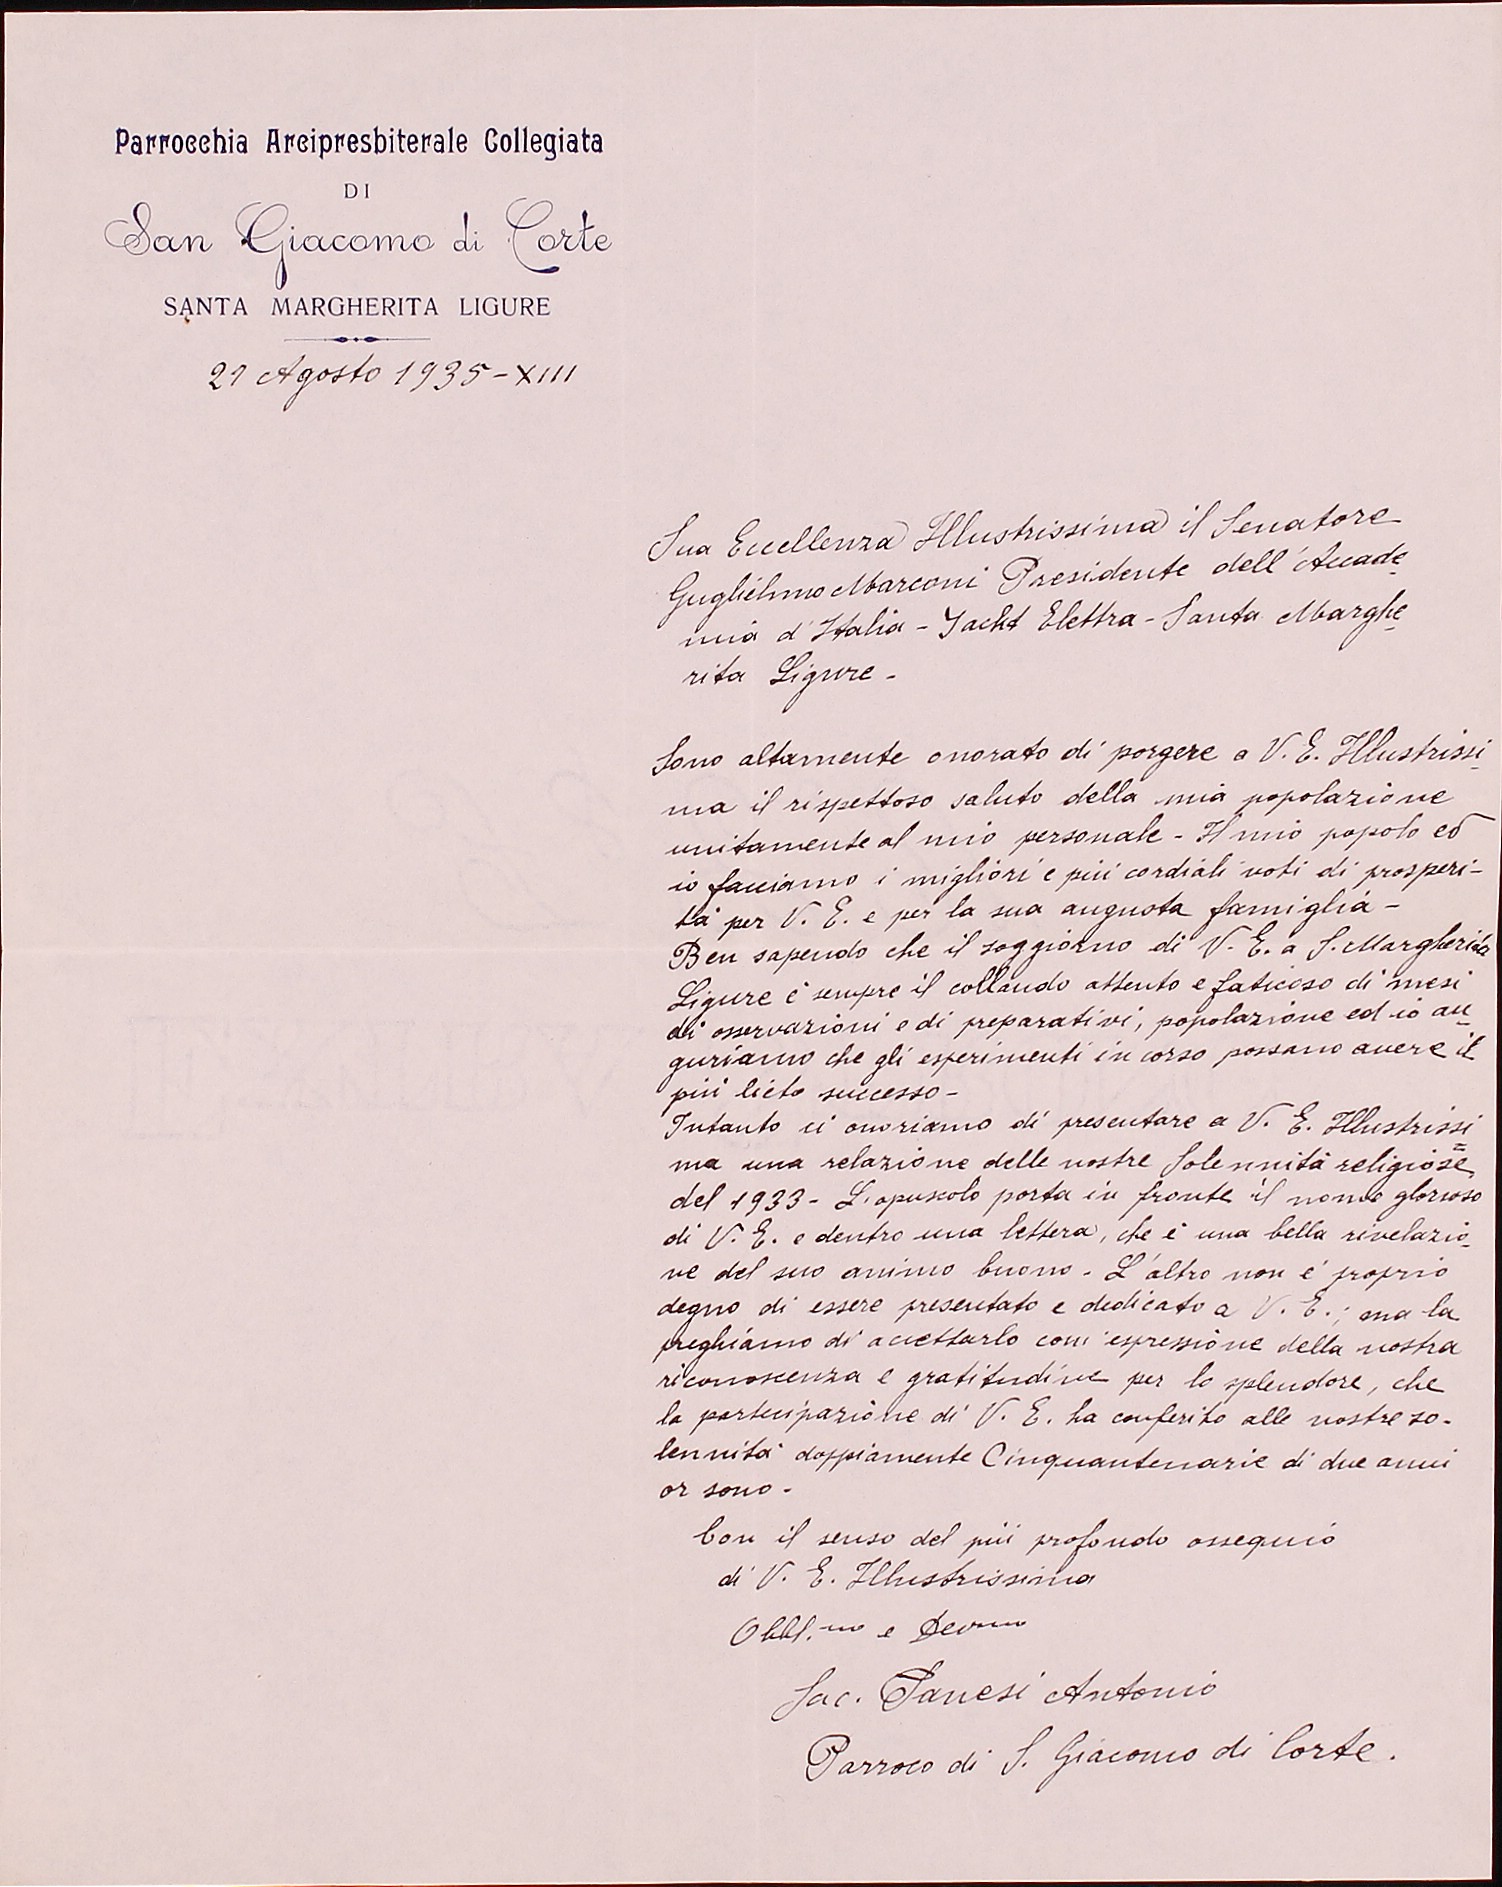 Parrocchia Arcipresbiterale Collegiata
DI
San Giacomo di Corte
SANTA MARGHERITA LIGURE
21 Agosto 1935-XIII
Sua Eccellenza Illustrissima il Senatore
Guglielmo Marconi Presidente dell'Accade-
mia d'Italia - Yacht Elettra - Santa Marghe-
rita Ligure -
Sono altamente onorato di porgere a V. E. Illustrissi-
ma il rispettoso saluto della mia popolazione
unitamente al mio personale - Il mio popolo ed
io facciamo i migliori e più cordiali voti di prosperi-
tà per V. E. e per la sua augusta famiglia -
Ben sapendo che il soggiorno di V. E. a S. Margherita
Ligure è sempre il collaudo attento e faticoso di mesi
di osservazioni e di preparativi, popolazione ed io au-
guriamo che gli esperimenti in corso possano avere il
più lieto successo -
Intanto ci onoriamo di presentare a V. E. Illustrissi=
ma una relazione delle nostre Solennità religiose
del 1933 - L'opuscolo porta in fronte il nome glorioso
di V. E. e dentro una lettera, che è una bella rivelazio-
ne del suo animo buono - L'altro non è proprio
degno di essere presentato e dedicato a V. E.; ma la
preghiamo di accettarlo com'espressione della nostra
riconoscenza e gratitudine per lo splendore, che
la partecipazione di V. E. ha conferito alle nostre so-
lennità doppiamente Cinquantenarie di due anni
or sono -
Con il senso del più profondo ossequio
di V. E. Illustrissima
Obbl.mo e Devmo
Sac. Sanesi Antonio
Parroco di S. Giacomo di Corte.